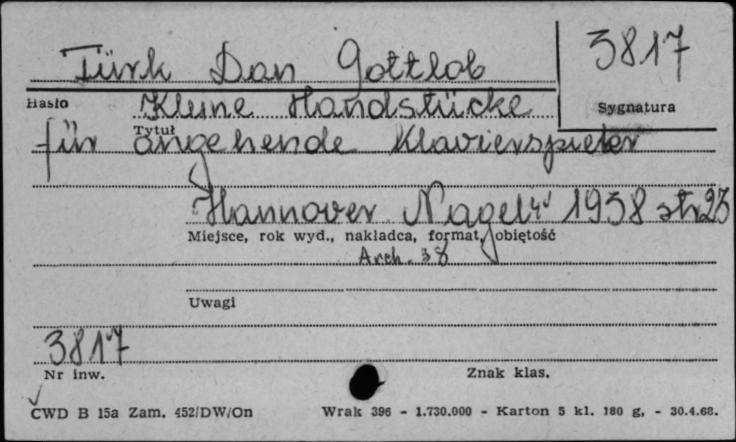 Türk Dan Gottlob 3817
Hasło Kleine Handstücke Sygnatura
Tytuł
für angehende Klavierspieler
Hannover Nagel 1938 str 23
Miejsce, rok wyd., nakładca, format, objętość
Arch. 38
Uwagi
3817
Nr inw. Znak klas.
CWD B 15a Zam. 452/DW/On Wrak 396 - 1.730.000 - Karton 5 kl. 180 g. - 30.4.68.